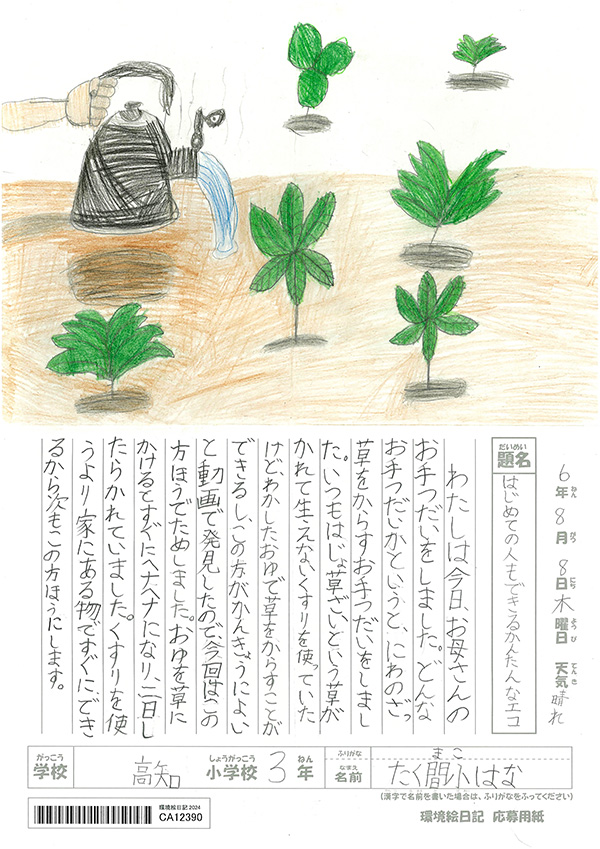 6年8月8日木曜日 天気晴れ
ねん がつ にち ようび てんき
だいめい
題名
はじめての人もできるかんたんなエコ
わたしは今日、お母さんの
お手つだいをしました。どんな
お手つだいかというと、にわのざっ
草をからすお手つだいをしまし
た。いつもはじょ草ざいという草が
かれて生えないくすりを使っていた
けど、わかしたおゆで草をからすことが
できるし、この方がかんきょうによい
と動画で発見したので、今回はこの
方ほうでためしました。おゆを草に
かけるとすぐにヘナヘナになり、二日し
たらかれていました。くすりを使
うより家にある物ですぐにでき
るから次もこの方ほうにします。
がっこう しょうがっこう ねん
学校 高知 小学校 3年
ふりがな まこ
なまえ
名前 たく間小はな
(漢字で名前を書いた場合は、ふりがなをふってください)
環境絵日記 応募用紙
環境絵日記 2024
CA12390